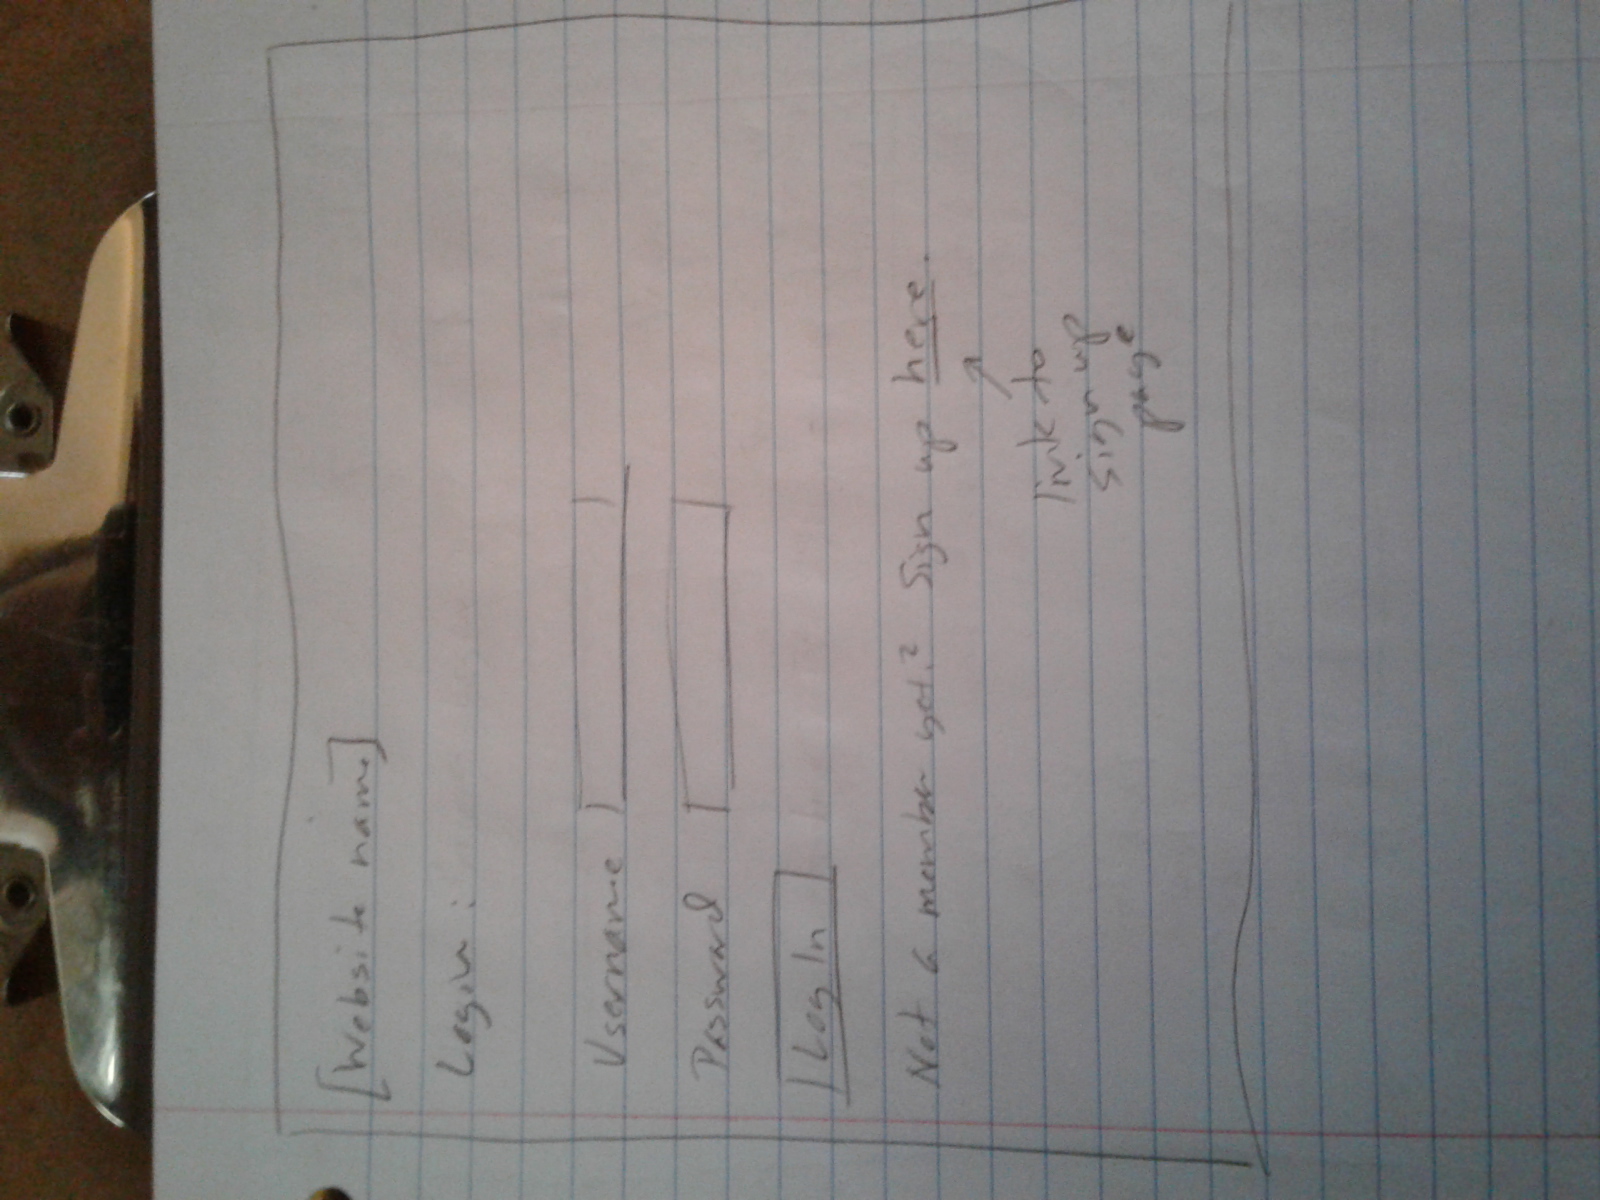 [Website name]
Login:
Username
Password
Log In
Not a member yet? Sign up here.
link to
sign up
page